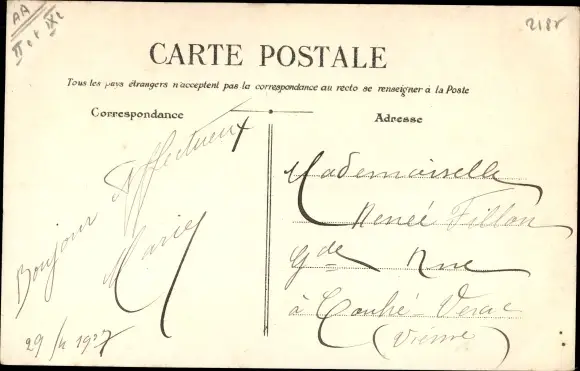 AA
II et IXe
2188
CARTE POSTALE
Tous les pays étrangers n'acceptent pas la correspondance au recto se renseigner à la Poste
Correspondance
Adresse
Bonjour Affectueux
Marie
29/4 1907
Mademoiselle
Renée Fillon
Gde Rue
à Couhé-Verac
(Vienne)